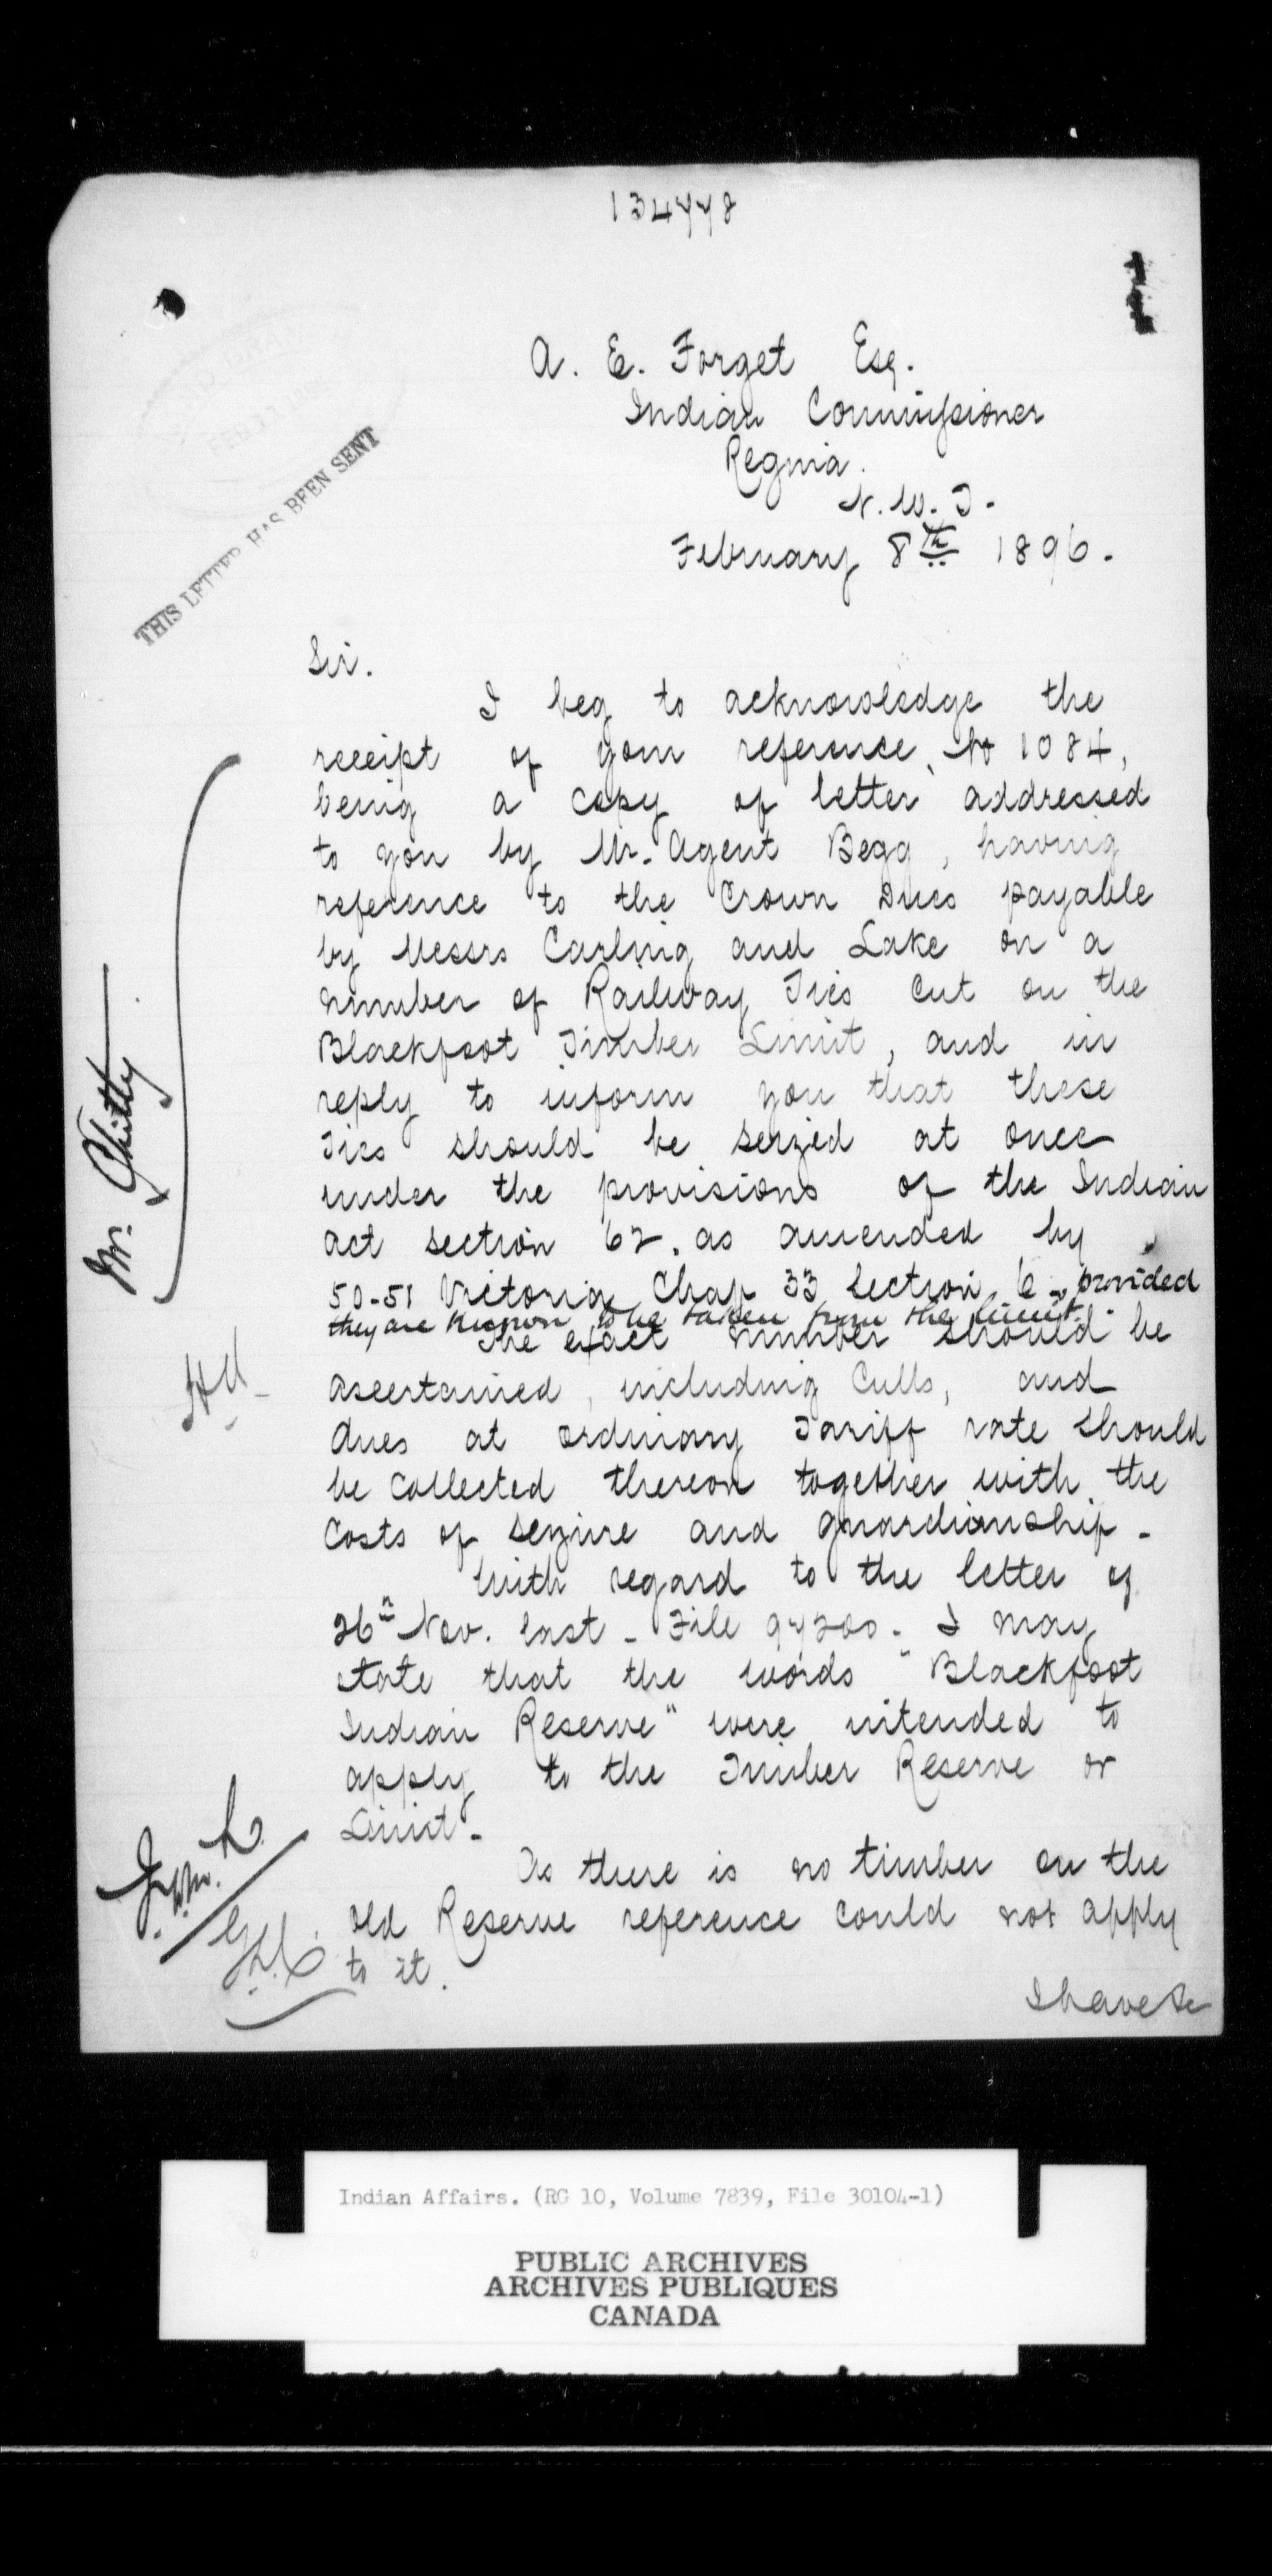 134778
A. E. Forget Esq.
Indian Commissioner
Regina.
N.W.T.
February 8th 1896.
THIS LETTER HAS BEEN SENT
Sir.
I beg to acknowledge the
receipt of your reference, No 1084,
being a copy of letter addressed
to you by Mr. Agent Begg, having
reference to the Crown Dues payable
by Messrs Carling and Lake on a
number of Railway Ties cut on the
Blackfoot Timber Limit, and in
reply to inform you that these
Ties should be seized at once
under the provisions of the Indian
act section 62. as amended by
50-51 Victoria Chap 33 Section 6 provided
they are known to be taken from the limit.
The exact number should be
ascertained, including Culls, and
dues at ordinary Tariff rate should
be collected thereon together with the
Costs of seizure and guardianship -
With regard to the letter of
26th Nov. last - File 97200. I may
state that the words "Blackfoot
Indian Reserve" were intended to
apply to the Timber Reserve or
Limit -
As there is no timber on the
old Reserve reference could not apply
to it.
I have &c
Mr. Chitty
Indian Affairs. (RG 10, Volume 7839, File 30104-1)
PUBLIC ARCHIVES
ARCHIVES PUBLIQUES
CANADA